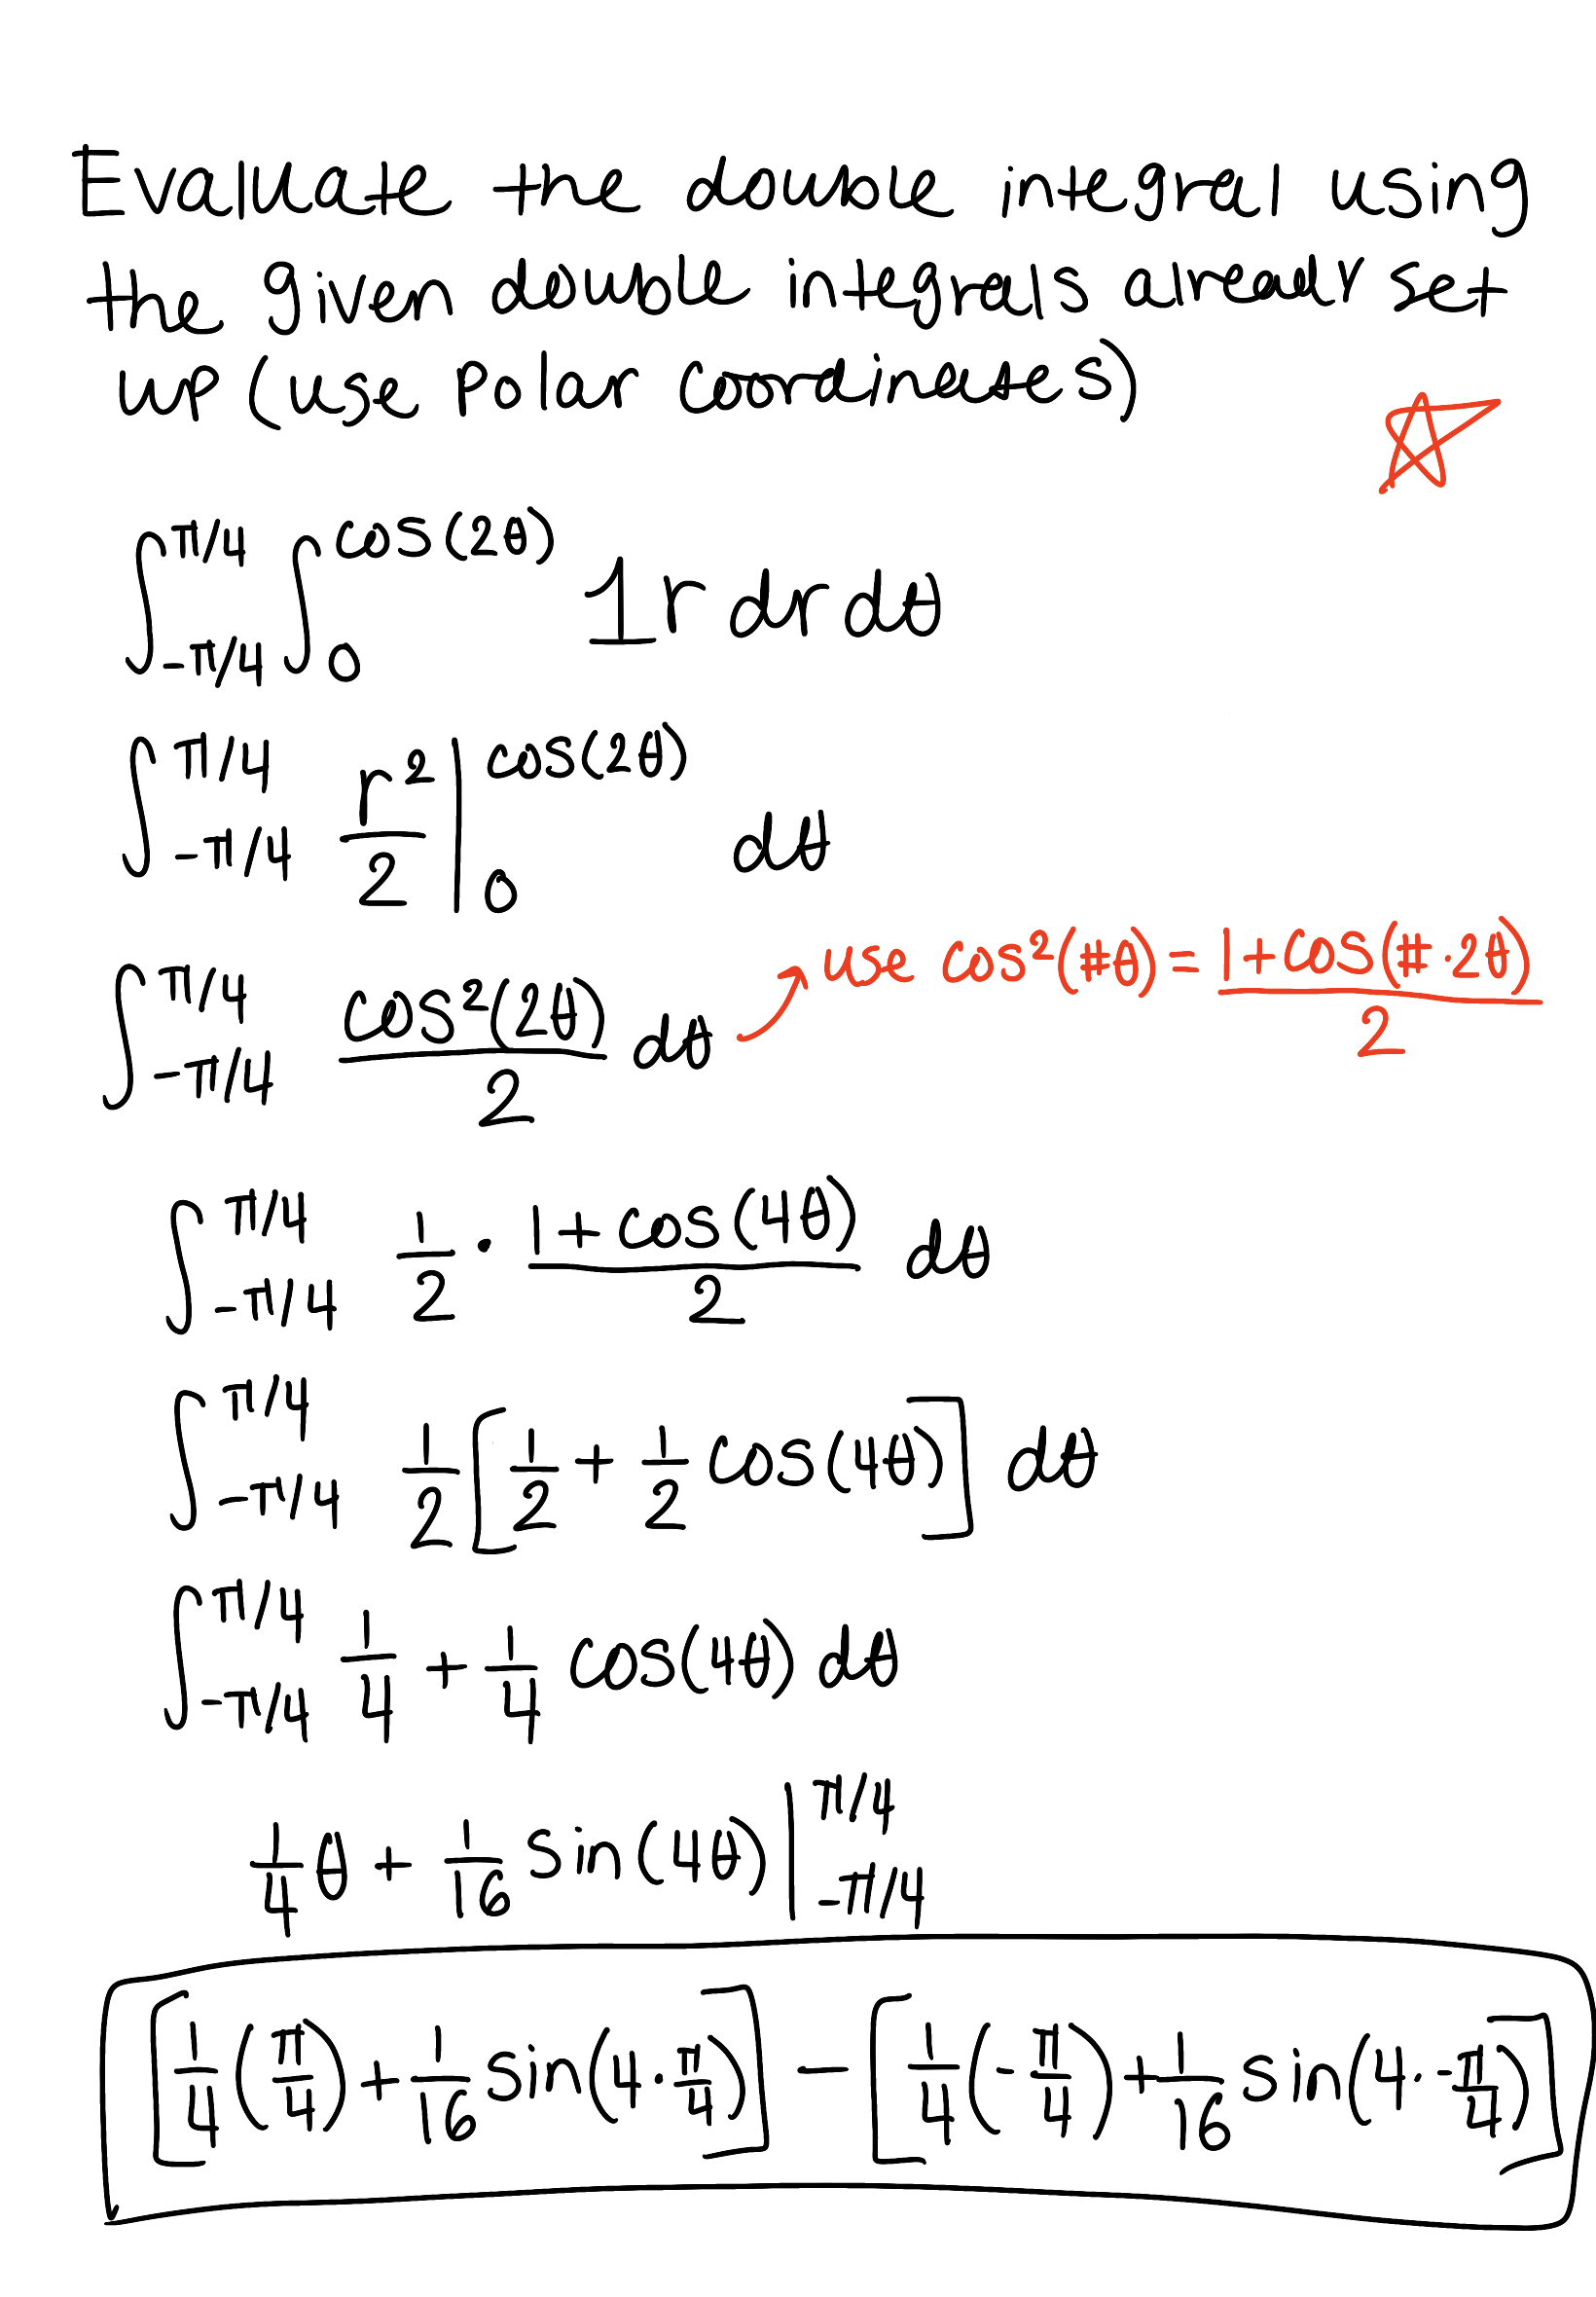 Evaluate the double integral using
the given double integrals already set
up (use polar coordinates)
∫_{-π/4}^{π/4} ∫_0^{cos(2θ)} 1 r dr dθ
∫_{-π/4}^{π/4} r²/2 |_0^{cos(2θ)} dθ
∫_{-π/4}^{π/4} cos²(2θ)/2 dθ
use cos²(#θ) = (1+cos(#·2θ))/2
∫_{-π/4}^{π/4} 1/2 · (1+cos(4θ))/2 dθ
∫_{-π/4}^{π/4} 1/2 [1/2 + 1/2 cos(4θ)] dθ
∫_{-π/4}^{π/4} 1/4 + 1/4 cos(4θ) dθ
1/4 θ + 1/16 sin(4θ) |_{-π/4}^{π/4}
[1/4 (π/4) + 1/16 sin(4·π/4)] − [1/4 (-π/4) + 1/16 sin(4·-π/4)]